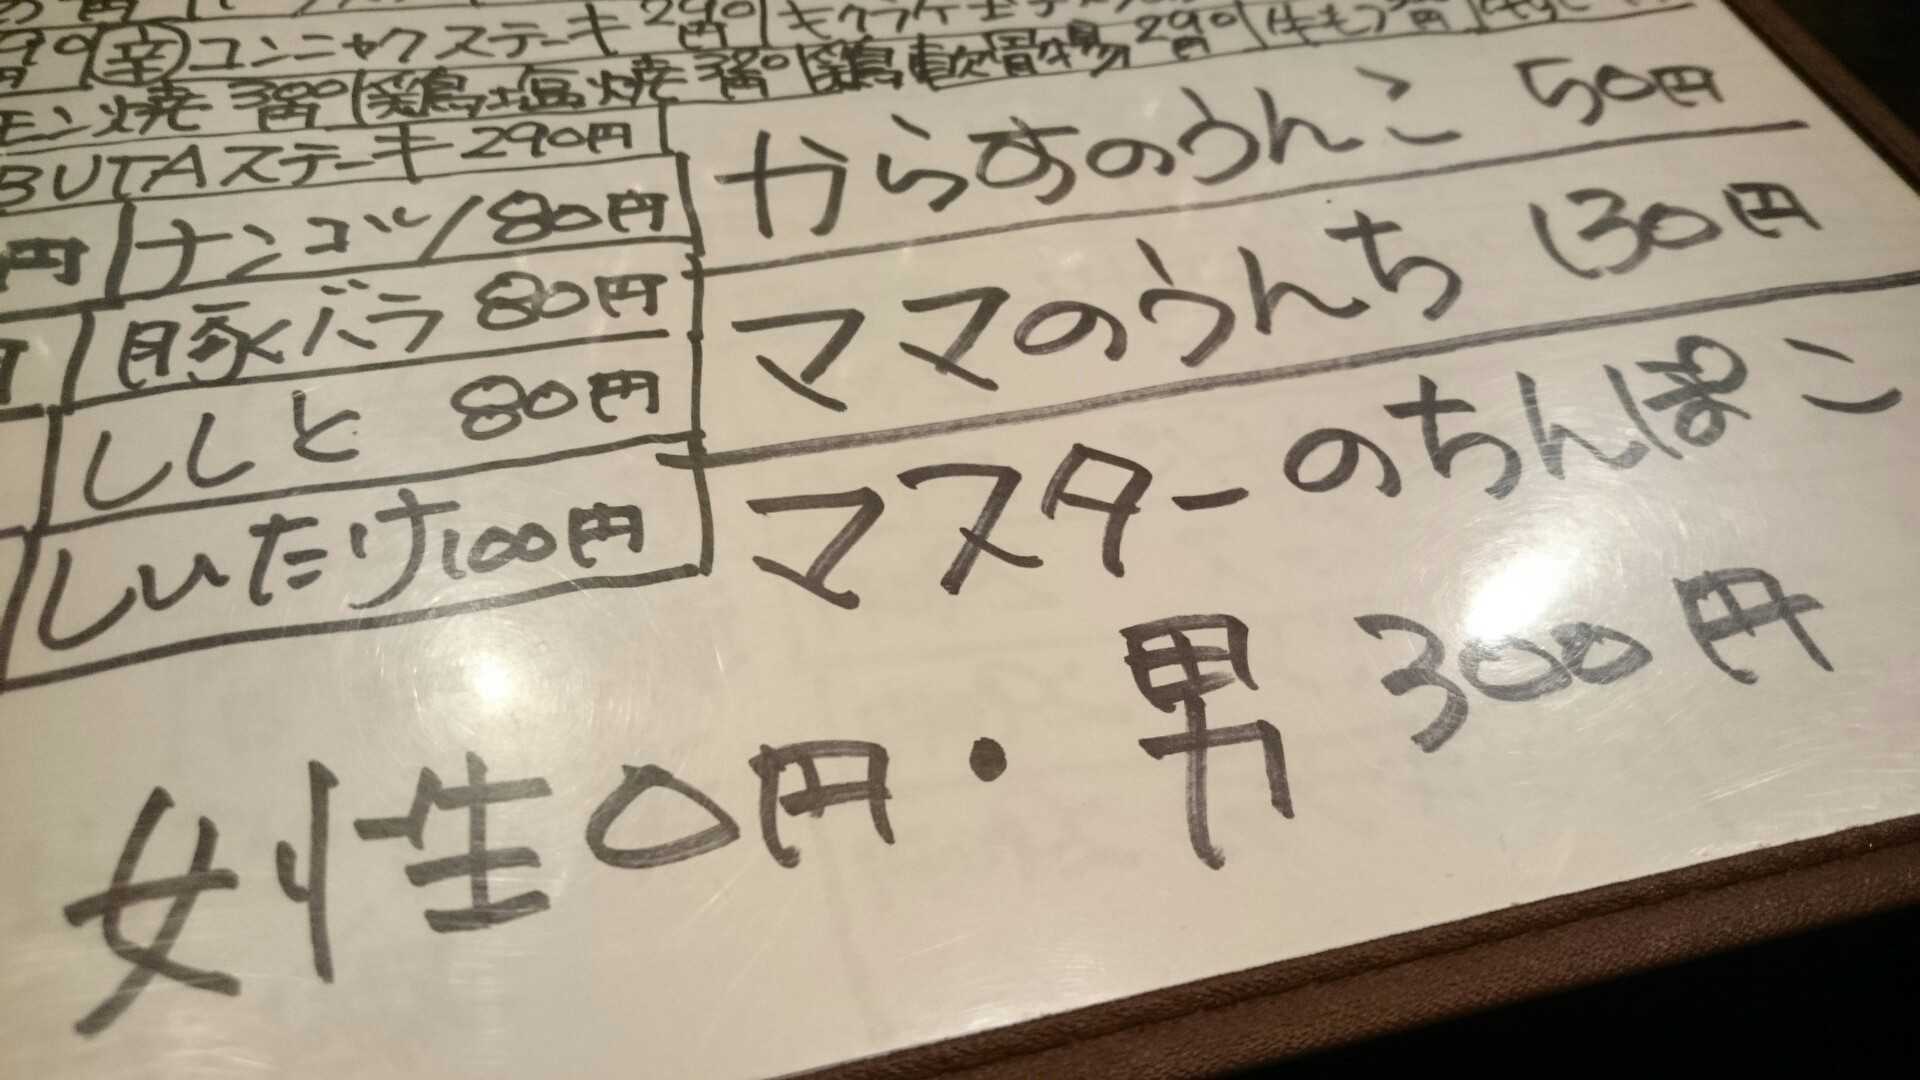 辛 コンニャクステーキ 290円
モン焼 300円 鶏塩焼 380円 鶏軟骨揚 290円 牛もつ
BUTAステーキ 290円
からすのうんこ 50円
円 ナンコツ 80円
ママのうんち 130円
豚バラ 80円
ししと 80円
マスターのちんぽこ
しいたけ 100円
男 300円
女性0円・